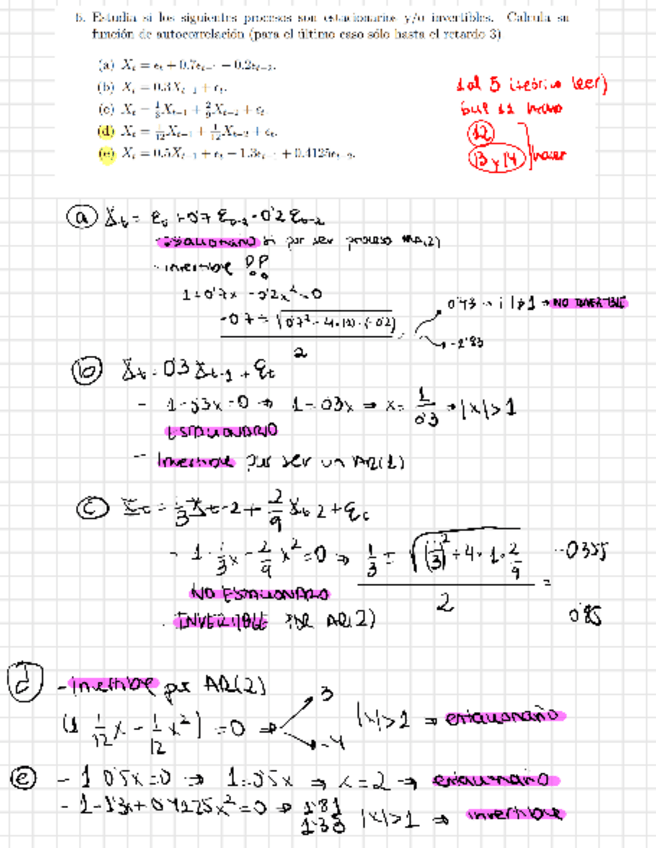 5. Estudia si los siguientes procesos son estacionarios y/o invertibles. Calcula su
función de autocorrelación (para el último caso sólo hasta el retardo 3)
(a) Xt = εt + 0.7εt-1 − 0.2εt-2.
(b) Xt = 0.3Xt-1 + εt.
(c) Xt = 1/3 Xt-1 + 2/9 Xt-2 + εt.
(d) Xt = 1/12 Xt-1 + 1/12 Xt-2 + εt.
(e) Xt = 0.5Xt-1 + εt − 1.3εt-1 + 0.4125εt-2.
1 al 5 (teórico leer)
12
13 y 14 } hacer
a) Xt = εt + 0'7 εt-1 - 0'2 εt-2
- estacionario si por ser proceso MA(2)
- invertible ??
1 + 0'7x - 0'2x² = 0
-0'7 ± √(0'7² - 4·(1)·(-0'2)) / 2
→ NO INVERTIBLE
b) Xt = 0'3 Xt-1 + εt
- 1 - 0'3x = 0 → 1 = 0'3x → x = 1/0'3 → |x| > 1
ESTACIONARIO
- Invertible por ser un AR(1)
c) Xt = 1/3 Xt-2 + 2/9 Xt-2 + εt
- 1 - 1/3 x - 2/9 x² = 0 → 1/3 ± √((1/3)² + 4·1·2/9) / 2 =
0'85
NO ESTACIONARIO
INVERTIBLE POR AR(2)
d) - Invertible por AR(2)
(1 1/12 x - 1/12 x²) = 0 → 3
-4
|x| > 1 → estacionario
e) - 1 0'5x = 0 → 1 = 0'5x → x = 2 → estacionario
- 1 - 1'3x + 0'4125x² = 0 → 1'81
1'33 |x| > 1 → invertible